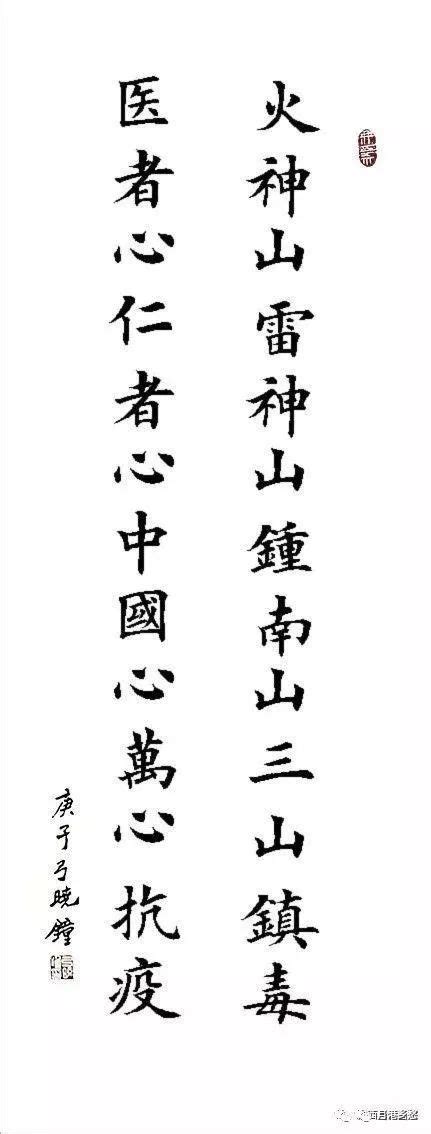 火神山雷神山鍾南山三山鎮毒
医者心仁者心中國心萬心抗疫
庚子弓晓鐘